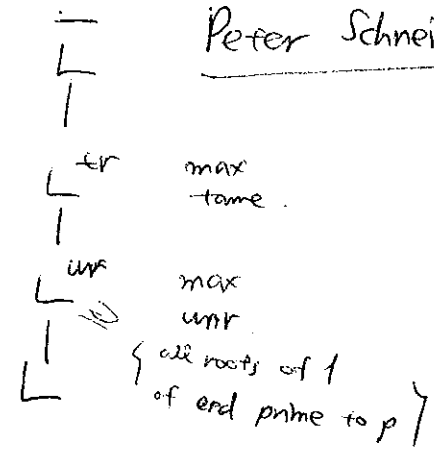 Peter Schnei
L̅
L^tr max
tame.
L^ur max
unr.
{ all roots of 1
L of ord prime to p }